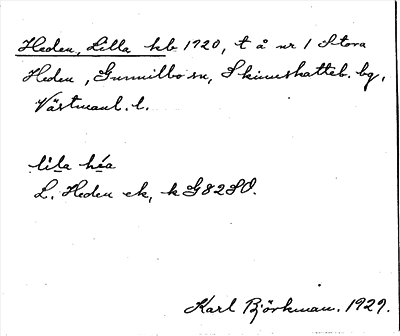 Heden, Lilla kb 1920, t å nr 1 Stora
Heden, Gunnilbo sn, Skinnskatteb. bg,
Västmanl. l.
lila héa
L. Heden ek, k G82SO.
Karl Björkman. 1929.